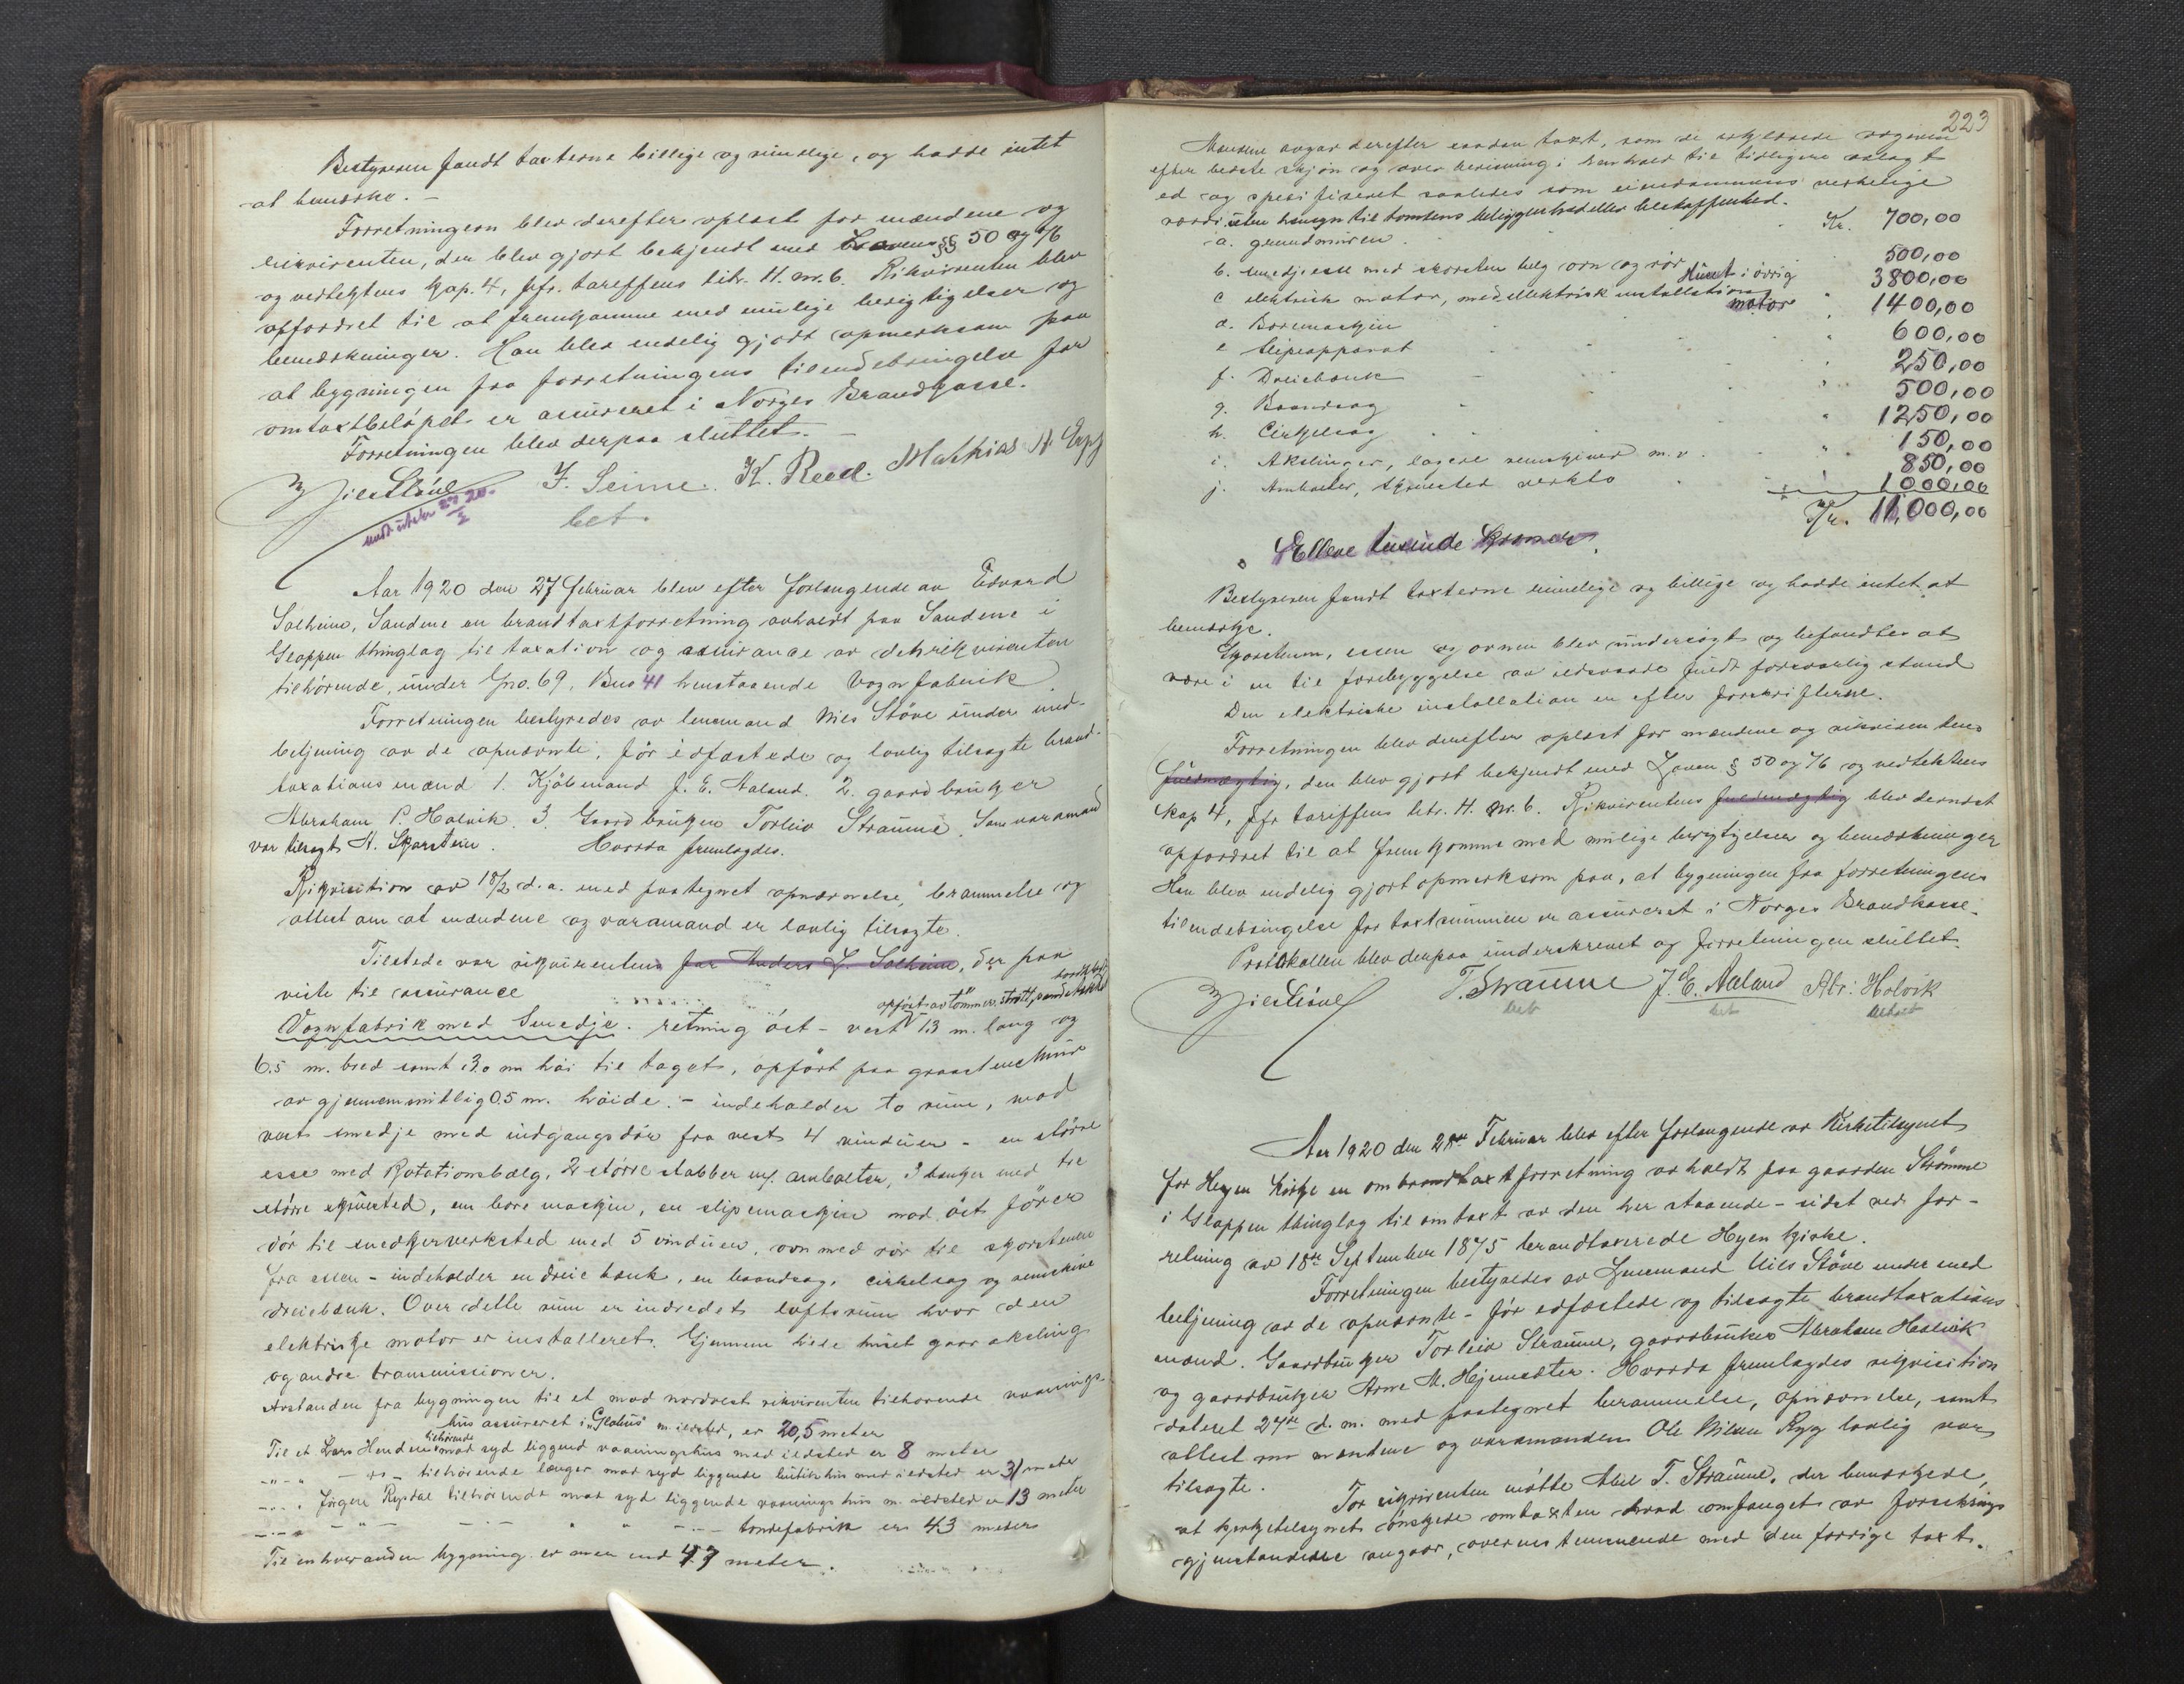 Bestyreren fandt taxterne billige og rimelige, og hadde intet
at bemerke. –
Forretningen blev derefter oplæst for mændene og
rikvirenten, der blev gjort bekjendt med Lovens §§ 50 og 76
og vedtektens kap. 4, jfr. tareffens litr. H. nr. 6. Rikvirenten blev
opfordret til at fremkomme med mulige berigtigelser og
bemerkninger. Han blev endelig gjort opmerksom paa
at bygningen fra forretningens tilendebringelse for
omtaxtbeløpet er assureret i Norges Brandkasse.
Forretningen blev derpaa sluttet. –
Nils Støve J. Seime. K. Reed. Mathias N
bet
Aar 1920 den 27 februar blev efter forlangende av Edvard
Solheim, Sandene en brandtaxtforretning avholdt paa Sandene i
Gloppen thinglag til taxation og assurance av det rikvirenten
tilhørende, under Gno. 69, Bno 41 henstaaende Vognfabrik
Forretningen bestyredes av lensmand Nils Støve under med-
betjening av de opnævnte, før edfæstede og lovlig tilsagte brand-
taxationsmænd 1. Kjøbmand J. E. Aaland. 2. gaardbruker
Abraham P. Holvik. 3 Gaardbruker Torleiv Straume. Som varamand
var tilsagt A. Skarstein. Hvorda fremlagdes.
Rikvisition av 18/2 d.a. med paategnet opnævnelse, berammelse og
attest om at mændene og varamand er lovlig tilsagte.
Tilstede var rikvirentens far Anders L. Solheim, der paa
viste til assurance
opført av tømmer,
Vognfabrik med Smedje. retning øst – vest 13 m. lang og
6.5 m. bred samt 3.0 m høi til taget, opført paa graastensmur
av gjennemsnitlig 0.5 m. høide. – indeholder to rum, mod
vest smedje med indgangsdør fra vest 4 vinduer – en større
esse med Rotationsbælg, 2 større stabber m/ ambolter, 3 benker med tre
større skruested, en bore maskin, en slipemaskin mod øst fører
dør til snedkerverksted med 5 vinduer, ovn med rør til skorstenen
fra essen – indeholder en dreie benk, en baandsag, cirkelsag og
dreiebænk. Over dette rum er indredet loftsrum hvor den
elektriske motor er installeret. Gjennem hele huset gaar aksling
og andre transmissioner.
Avstanden fra bygningen til et mod nordvest rikvirenten tilhørende vaanings-
hus assureret i „Globus" m ildsted, er 20,5 meter
tilhørende
Til et Lars Henden mod syd liggend vaaningshus med ildsted er 8 meter
-"-" – " – tilhørende længer mod syd liggende butikhus med ildsted er 31 meter
-"-" Jørgen Rysdal tilhørende mod syd liggende vaaningshus m. ildsted er 13 meter
-"-" -"- -"- " " -"- tøndefabrik er 43 meter
Til enhver anden bygning er mer end 47 meter.
223
Mændene avgav derefter saadan taxt, som de erklærede avgiven
efter bedste skjøn og overbevisning i henhold til tidligere avlagt
ed og spesifiseret saaledes som eiendommens virkelige
værdi uten hensyn til tomtens beliggenhed eller beskaffenhed.
a. grundmuren Kr. 700,00
b. smedjeesse med skorsten belg ovn og rør 500,00
Huset i øvrig 3800,00
c elektrisk motor, med elektrisk installation
motor 1400,00
d. Boremaskin 600,00
e slipeapparat 250,00
f. Dreiebenk 500,00
g. Baandsag 1250,00
h. Cirkelsag 150,00
i. Akslinger, lagere remskiver m. v. 850,00
j. Ambolter, skruested 1000,00
Kr. 11,000,00
Elleve tusinde Kroner.
Bestyreren fandt taxterne rimelige og billige og hadde intet at
bemerke.
Skorstenen, essen og ovnen blev undersøgt og befandtes at
være i en til forebyggelse av ildsvaade fuldt forsvarlig stand
Den elektriske installation er efter forskrifterne.
Forretningen blev derefter oplæst for mændene og rikvirentens
fuldmægtig, den blev gjort bekjendt med Loven § 50 og 76 og vedtektens
kap 4, jfr tariffens litr. H. nr. 6. Rikvirentens fuldmægtig blev dernæst
opfordret til at fremkomme med mulige berigtigelser og bemerkninger
Han blev endelig gjort opmerksom paa, at bygningen fra forretningens
tilendebringelse for taxtsummen er assureret i Norges Brandkasse.
Protokollen blev derpaa underskrevet og forretningen sluttet.
Nils Støve T. Straume J. E. Aaland Abr: Holvik
bet bet
Aar 1920 den 28de Februar blev efter forlangende av Kirketilsynet
for Hyen Kirke en ombrandtaxtforretning avholdt paa gaarden Strømme
i Gloppen thinglag til omtaxt av den her staaende – sidst ved for-
retning av 18de September 1875 brandtaxerede Hyen kirke.
Forretningen bestyredes av Lensmand Nils Støve under med
betjening av de opnævnte – før edfæstede og tilsagte brandtaxations
mænd. Gaardbruker Torleiv Straume, gaardbruker Abraham Holvik
og gaardbruker Arne M. Hjemseter. Hvorda fremlagdes rikvisition
dateret 24de d. m. med paategnet berammelse, opnævnelse, samt
attest om mændene og varamanden Ole Nilsen Ryg lovlig var
tilsagte.
For rikvirenten møtte Abel T. Straume, der bemerkede,
at kirketilsynet ønskede omtaxten hvad omfanget av forsikrings
gjenstandene angaar, overensstemmende med den forrige taxt.